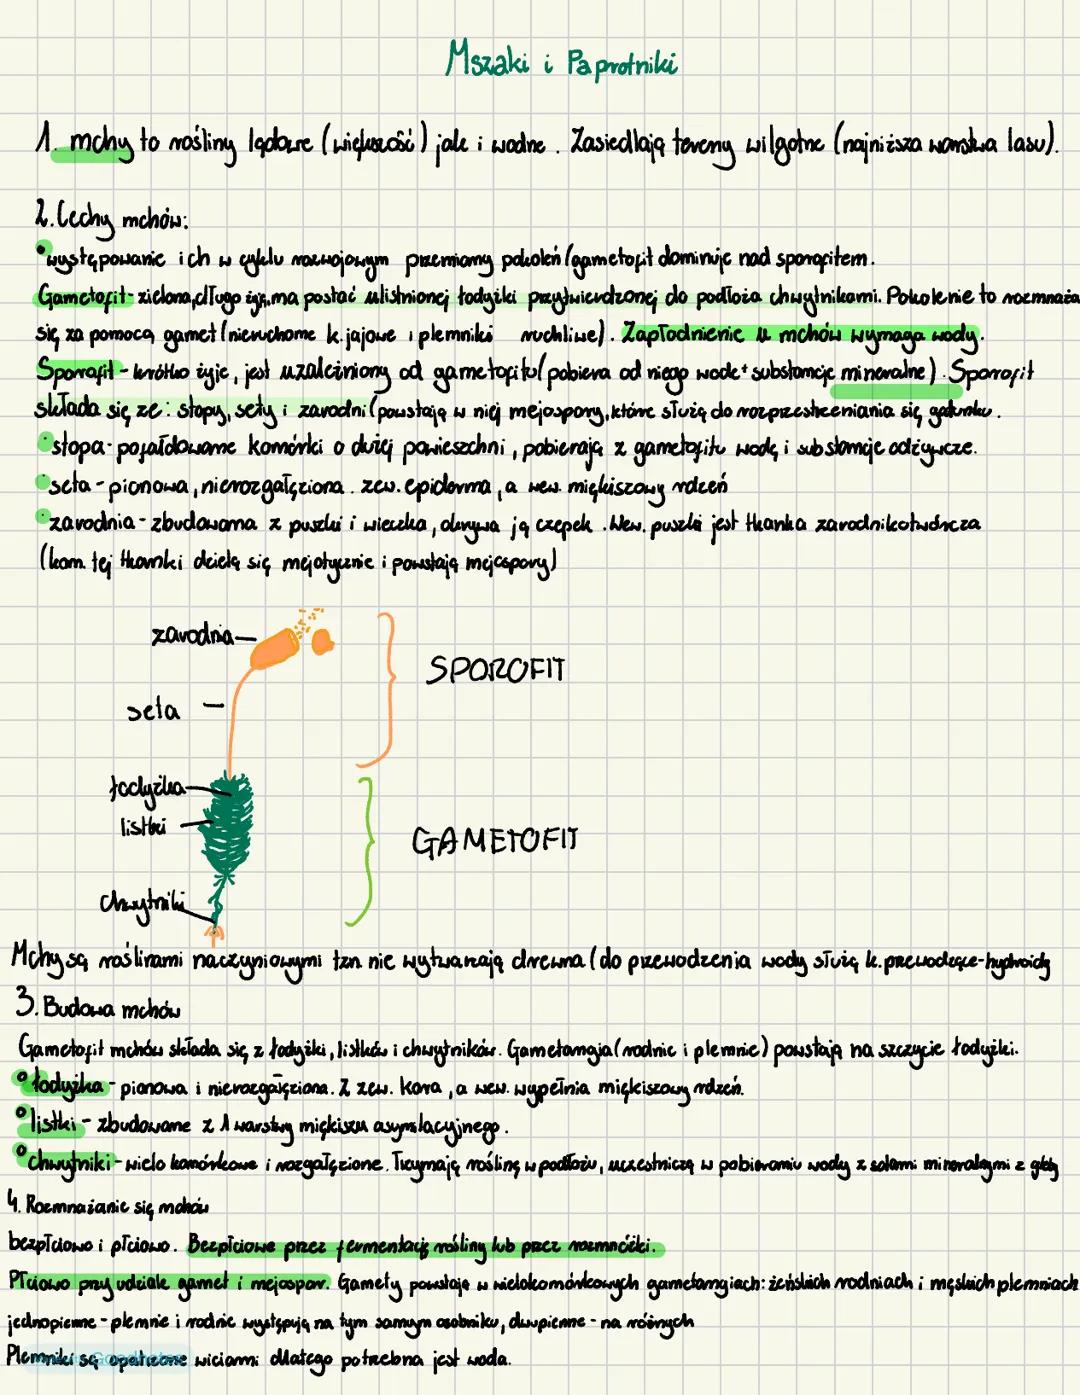 Mszaki i Paprotniki
1. mchy to rośliny lądowe (większość) jak i wodne. Zasiedlają tereny wilgotne (najniższa warstwa lasu).
2. Cechy mchów:
•występowanie ich w cyklu rozwojowym przemiany pokoleń (gametofit dominuje nad sporofitem.
Gametofit - zielona, długo żyje, ma postać ulistnionej łodyżki przytwierdzonej do podłoża chwytnikami. Pokolenie to rozmnaża
się za pomocą gamet (nieruchome k. jajowe i plemniki ruchliwe). Zapłodnienie u mchów wymaga wody.
Sporofit - krótko żyje, jest uzależniony od gametofitu (pobiera od niego wodę + substancje mineralne). Sporofit
składa się ze: stopy, sety i zarodni (powstają w niej mejospory, które służą do rozprzestrzeniania się gatunku.
•stopa - pofałdowane komórki o dużej powierzchni, pobierają z gametofitu wodę i substancje odżywcze.
•seta - pionowa, nierozgałęziona. zew. epiderma, a wew. miękiszowy rdzeń
•zarodnia - zbudowana z puszki i wieczka, okrywa ją czepek. Wew. puszki jest tkanka zarodnikotwórcza
(kom. tej tkanki dzielą się mejotycznie i powstają mejospory)
zarodnia
SPOROFIT
seta
łodyżka
listki
GAMETOFIT
chwytniki
Mchy są roślinami naczyniowymi tzn. nie wytwarzają drewna (do przewodzenia wody służą k. przewodzące - hydroidy
3. Budowa mchów
Gametofit mchów składa się z łodyżki, listków i chwytników. Gametangia (rodnie i plemnie) powstają na szczycie łodyżki.
•łodyżka - pionowa i nierozgałęziona. Z zew. kora, a wew. wypełnia miękiszowy rdzeń.
•listki - zbudowane z 1 warstwy miękiszu asymilacyjnego.
•chwytniki - wielo komórkowe i rozgałęzione. Trzymają roślinę w podłożu, uczestniczą w pobieraniu wody z solami mineralnymi z gleby
4. Rozmnażanie się mchów
bezpłciowo i płciowo. Bezpłciowe przez fermentację rośliny lub przez rozmnóżki.
Płciowo przy udziale gamet i mejospor. Gamety powstają w wielokomórkowych gametangiach: żeńskich rodniach i męskich plemniach
jednopienne - plemnie i rodnie występują na tym samym osobniku, dwupienne - na różnych
Plemniki są opatrzone wiciami dlatego potrzebna jest woda.